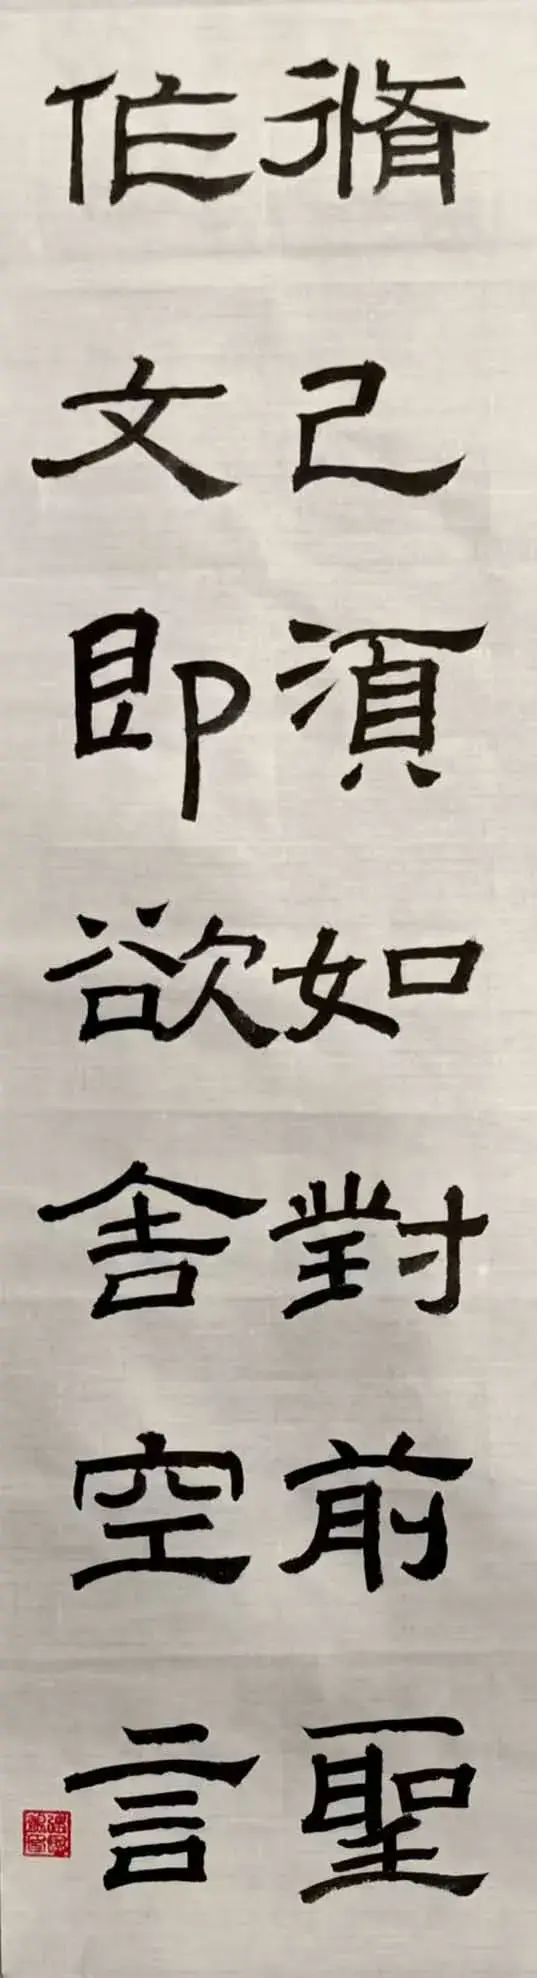 脩己須如對前聖
作文即欲舍空言